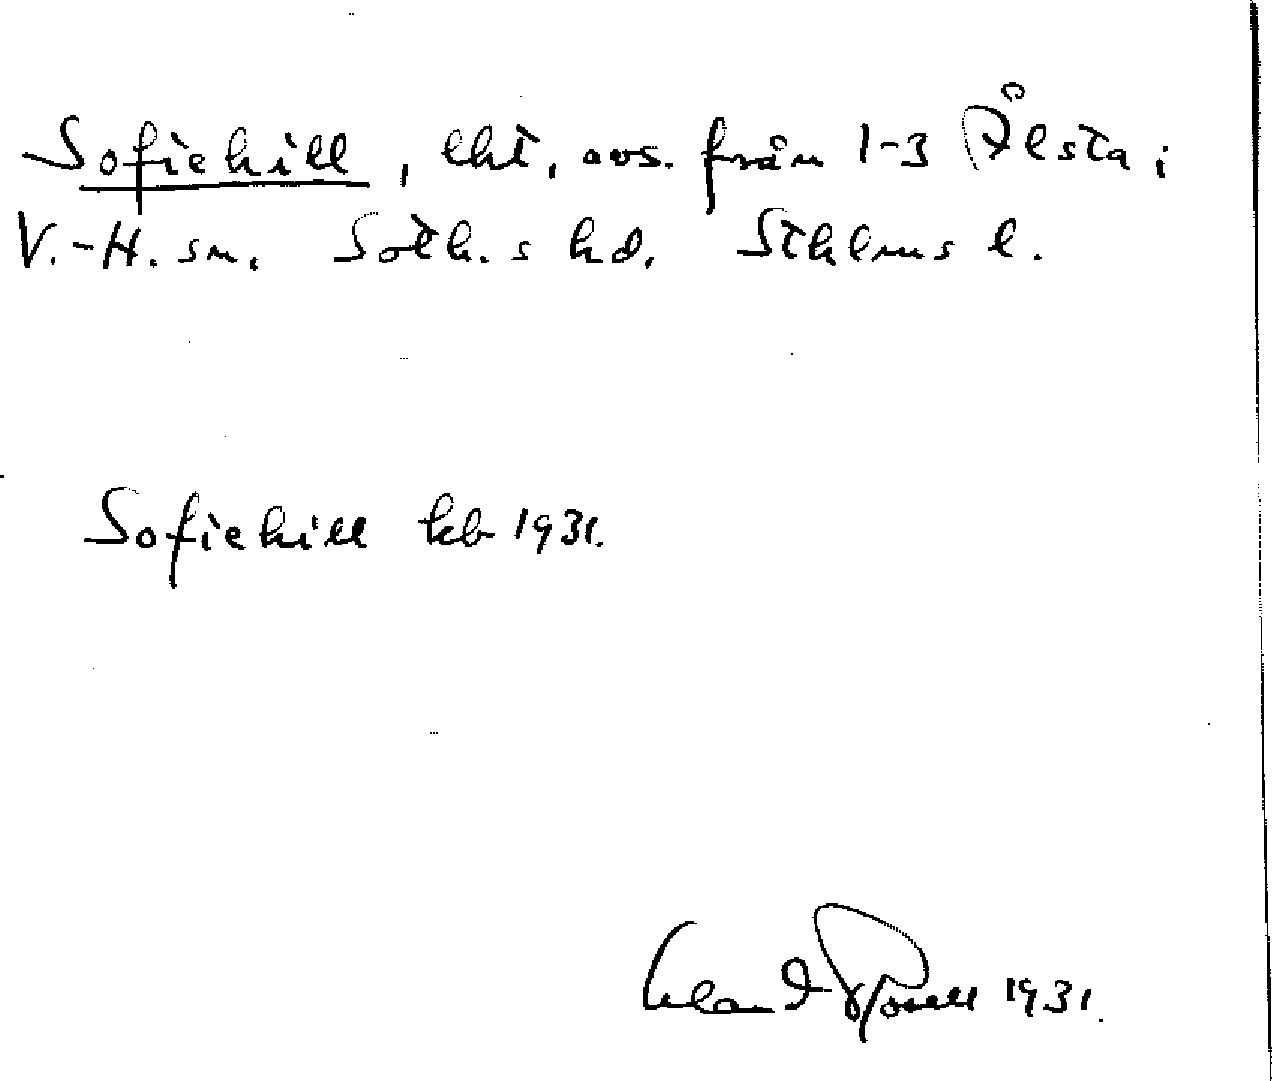 Sofiehill, lht, avs. från 1-3 Ålsta;
V.-H. sn. Soth.s hd. Sthlms l.
Sofiehill kb 1931.
1931.